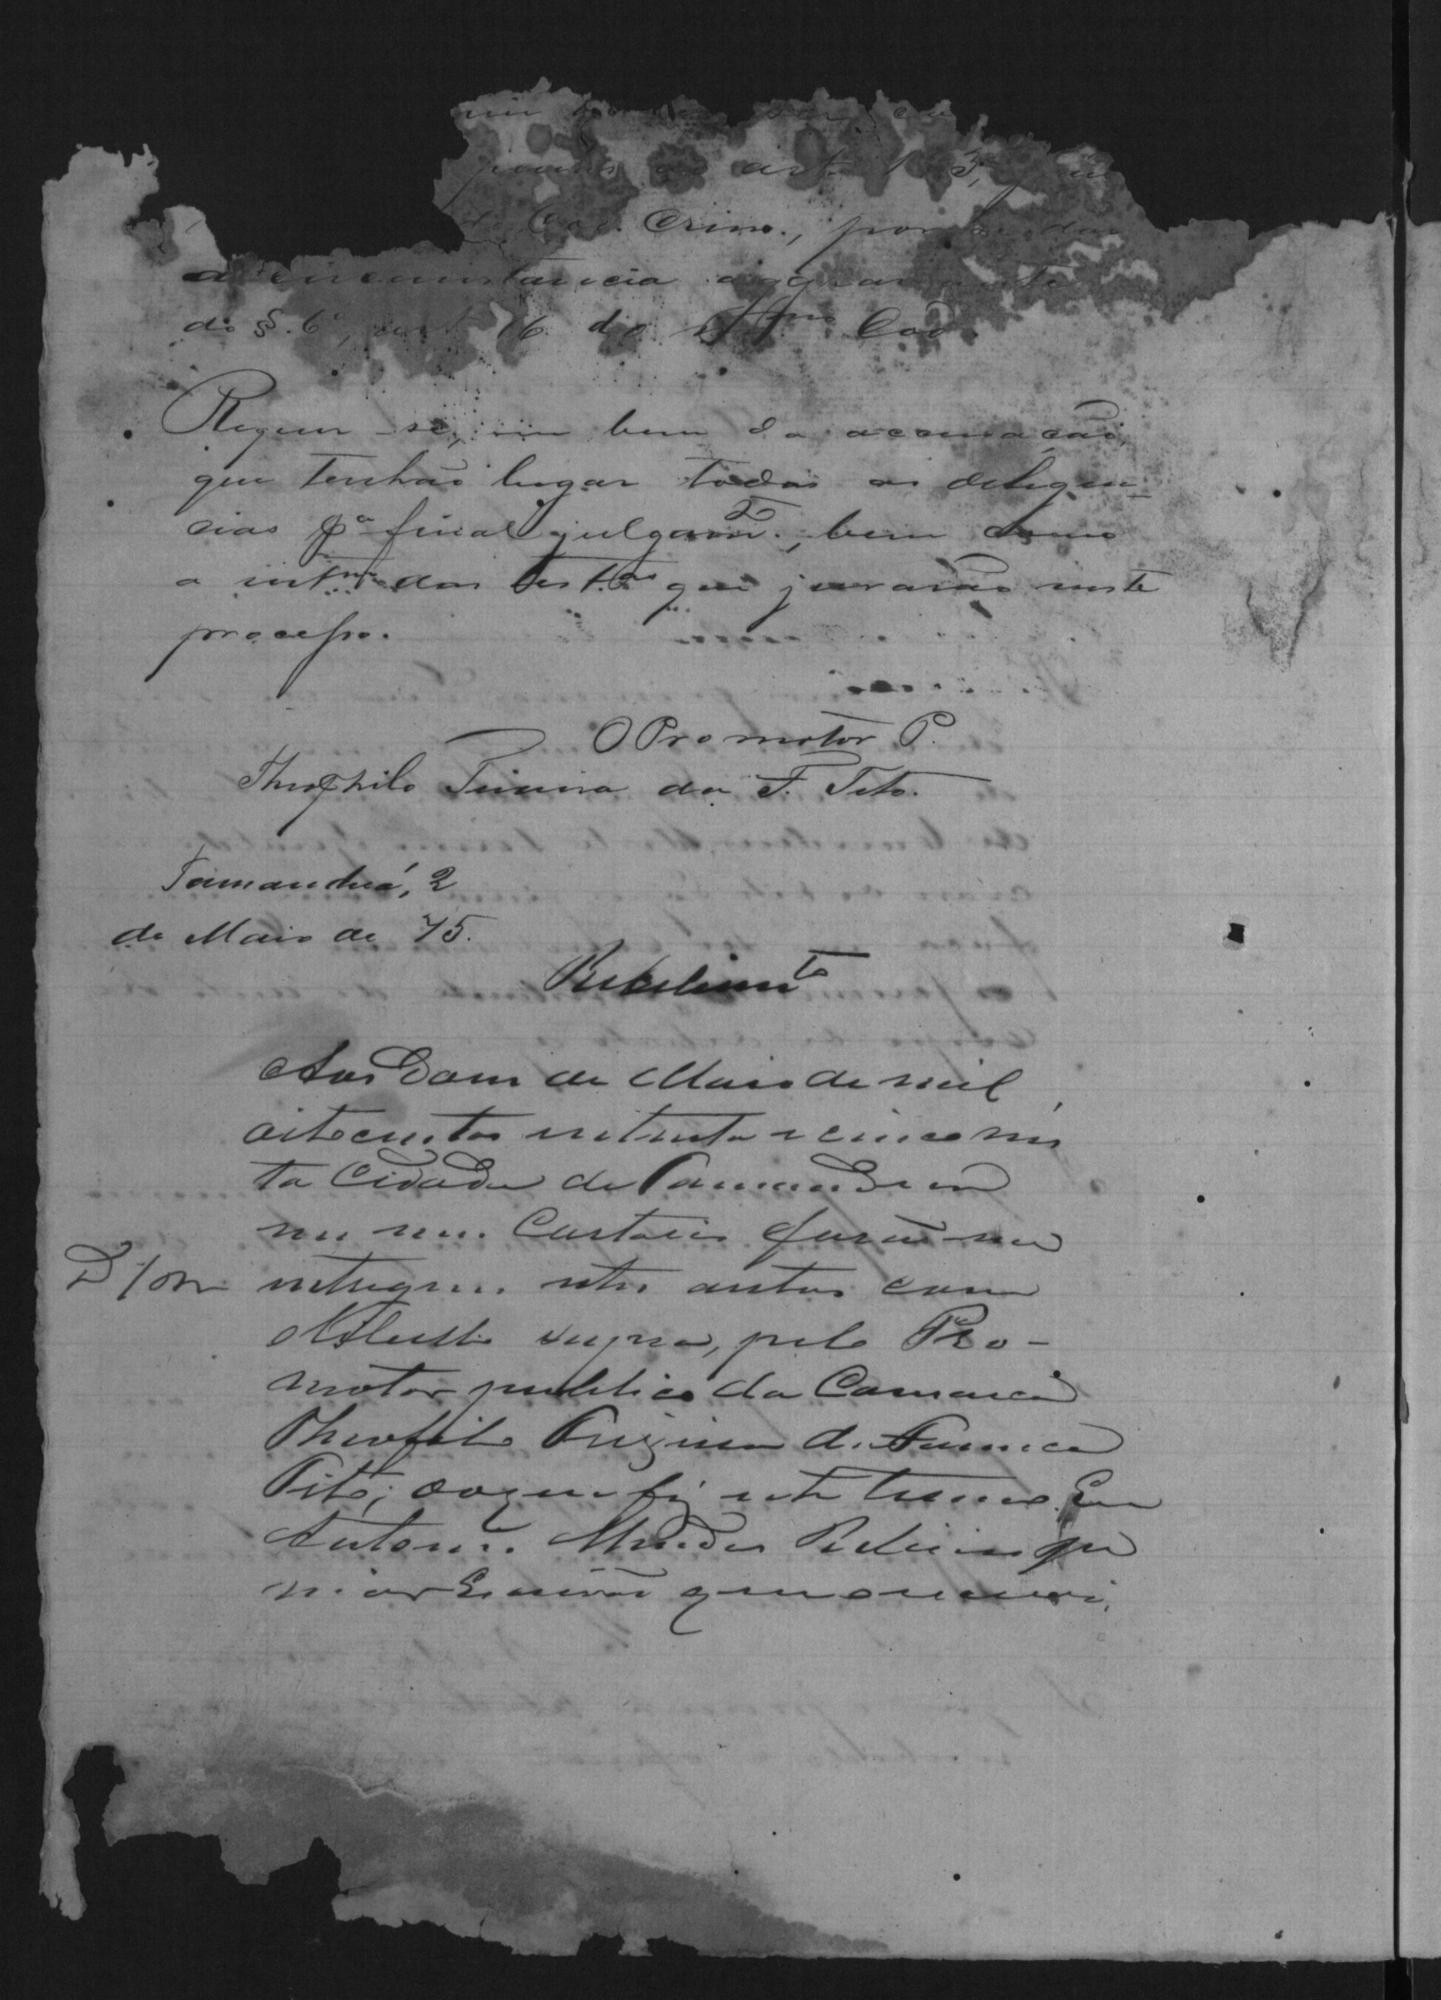 penas do art. 193,
do Cod. Crim., por se dar
a circumstancia aggravante
do §. 6º, art. 16 do mmo Cod.
Requer-se, em bem da accusação,
que tenhão lugar todas as deligen-
cias pª final julgamto., bem como
a intm. das testas. que jurarão neste
processo.
O Promotor P.
Theophilo Pereira da F. Pito.
Tamanduá, 2
de Maio de 75.
Recebimto
Aos dous de Maio de mil
oitocentos setenta e cinco nes
ta Cidade de Tamanduá em
meu Cartorio forão me
entregues estes autos com
o Libello supra, pelo Pro-
motor publico da Comarca
Theofilo Pereira da Fonseca
Pito; do que fiz este termo. Eu
Antonio Mendes
Escrivão que o escrevi.